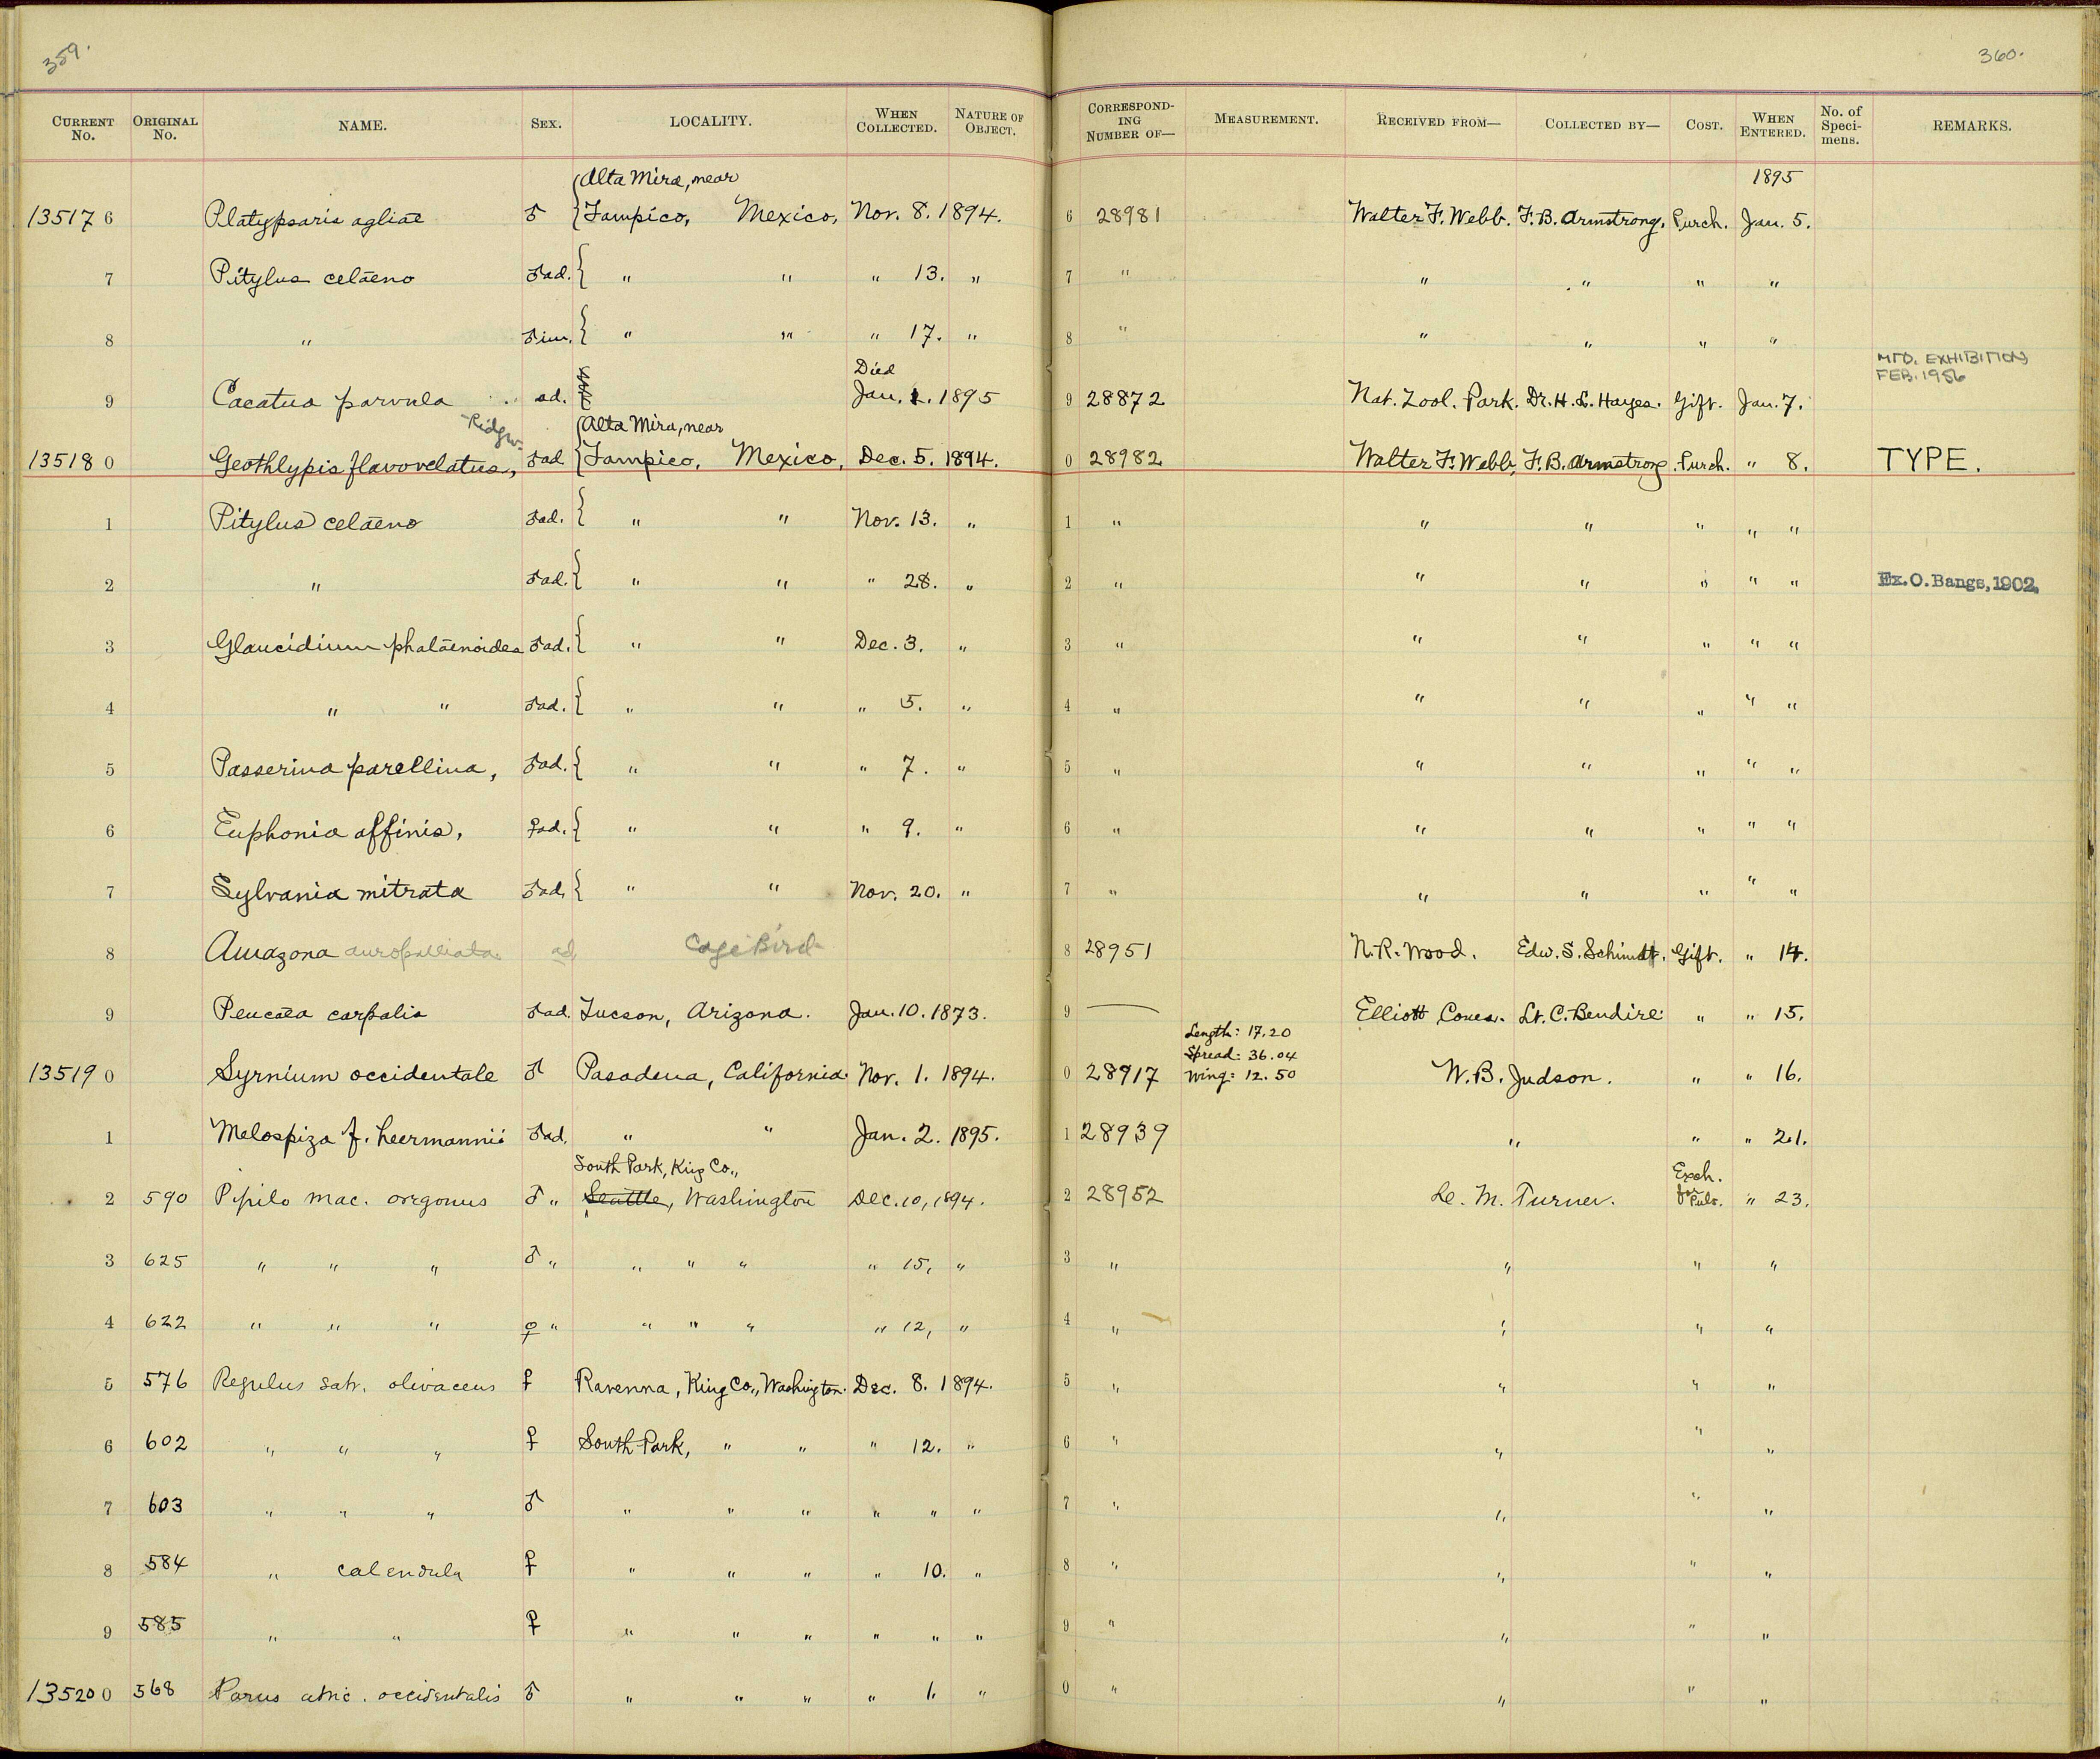 359.
360.
CURRENT No. ORIGINAL No. NAME. SEX. LOCALITY. WHEN COLLECTED. NATURE OF OBJECT. CORRESPONDING NUMBER OF— MEASUREMENT. RECEIVED FROM— COLLECTED BY— COST. WHEN ENTERED. No. of Specimens. REMARKS.
Alta Mira, near 1895
13517 6 Platypsaris agliae ♂ Tampico, Mexico, Nov. 8. 1894. 6 28981 Walter F. Webb. F. B. Armstrong. Purch. Jan. 5.
7 Pitylus celaeno ♂ad. { " " " 13. " 7 " " " " "
8 " ♂im. { " " " 17. " 8 " " " " "
Died MTD. EXHIBITION FEB. 1956
9 Cacatua parvula ad. Jan. 1. 1895 9 28872 Nat. Zool. Park. Dr. H. C. Hayes. Gift. Jan. 7.
Ridgw. Alta Mira, near
13518 0 Geothlypis flavovelatus, ♂ad Tampico, Mexico, Dec. 5. 1894. 0 28982 Walter F. Webb, F. B. Armstrong. Purch. " 8. TYPE.
1 Pitylus celaeno ♂ad. { " " Nov. 13. " 1 " " " " " "
2 " ♂ad. { " " " 28. " 2 " " " " " " Ex. O. Bangs, 1902.
3 Glaucidium phalaenoides ♂ad. { " " Dec. 3. " 3 " " " " " "
4 " " ♂ad. { " " " 5. " 4 " " " " " "
5 Passerina parellina, ♂ad. { " " " 7. " 5 " " " " " "
6 Euphonia affinis, ♀ad. { " " " 9. " 6 " " " " " "
7 Sylvania mitrata ♂ad. { " " Nov. 20. " 7 " " " " " "
8 Amazona auropalliata ad. Cage Bird 8 28951 N. R. Wood. Edw. S. Schmidt. Gift. " 14.
9 Peucaea carpalis ♂ad. Tucson, Arizona. Jan. 10. 1873. 9 — Elliott Coues. Lt. C. Bendire. " " 15.
Length: 17.20
Spread: 36.04
13519 0 Syrnium occidentale ♂ Pasadena, California. Nov. 1. 1894. 0 28917 Wing: 12.50 W. B. Judson. " " 16.
1 Melospiza f. heermanni ♂ad. " " Jan. 2. 1895. 1 28939 " " " 21.
South Park, King Co., Exch.
2 590 Pipilo mac. oregonus ♂ " Seattle, Washington Dec. 10, 1894. 2 28952 L. M. Turner. for Pub. " 23.
3 625 " " " ♂ " " " " " 15, " 3 " " " "
4 622 " " " ♀ " " " " " 12, " 4 " " " "
5 576 Regulus satr. olivaceus ♀ Ravenna, King Co., Washington. Dec. 8. 1894. 5 " " " "
6 602 " " " ♀ South Park, " " " 12. " 6 " " " "
7 603 " " " ♂ " " " " " " 7 " " " "
8 584 " calendula ♀ " " " " 10. " 8 " " " "
9 585 " " ♀ " " " " " " 9 " " " "
13520 0 568 Parus atric. occidentalis ♂ " " " " 1. " 0 " " " "